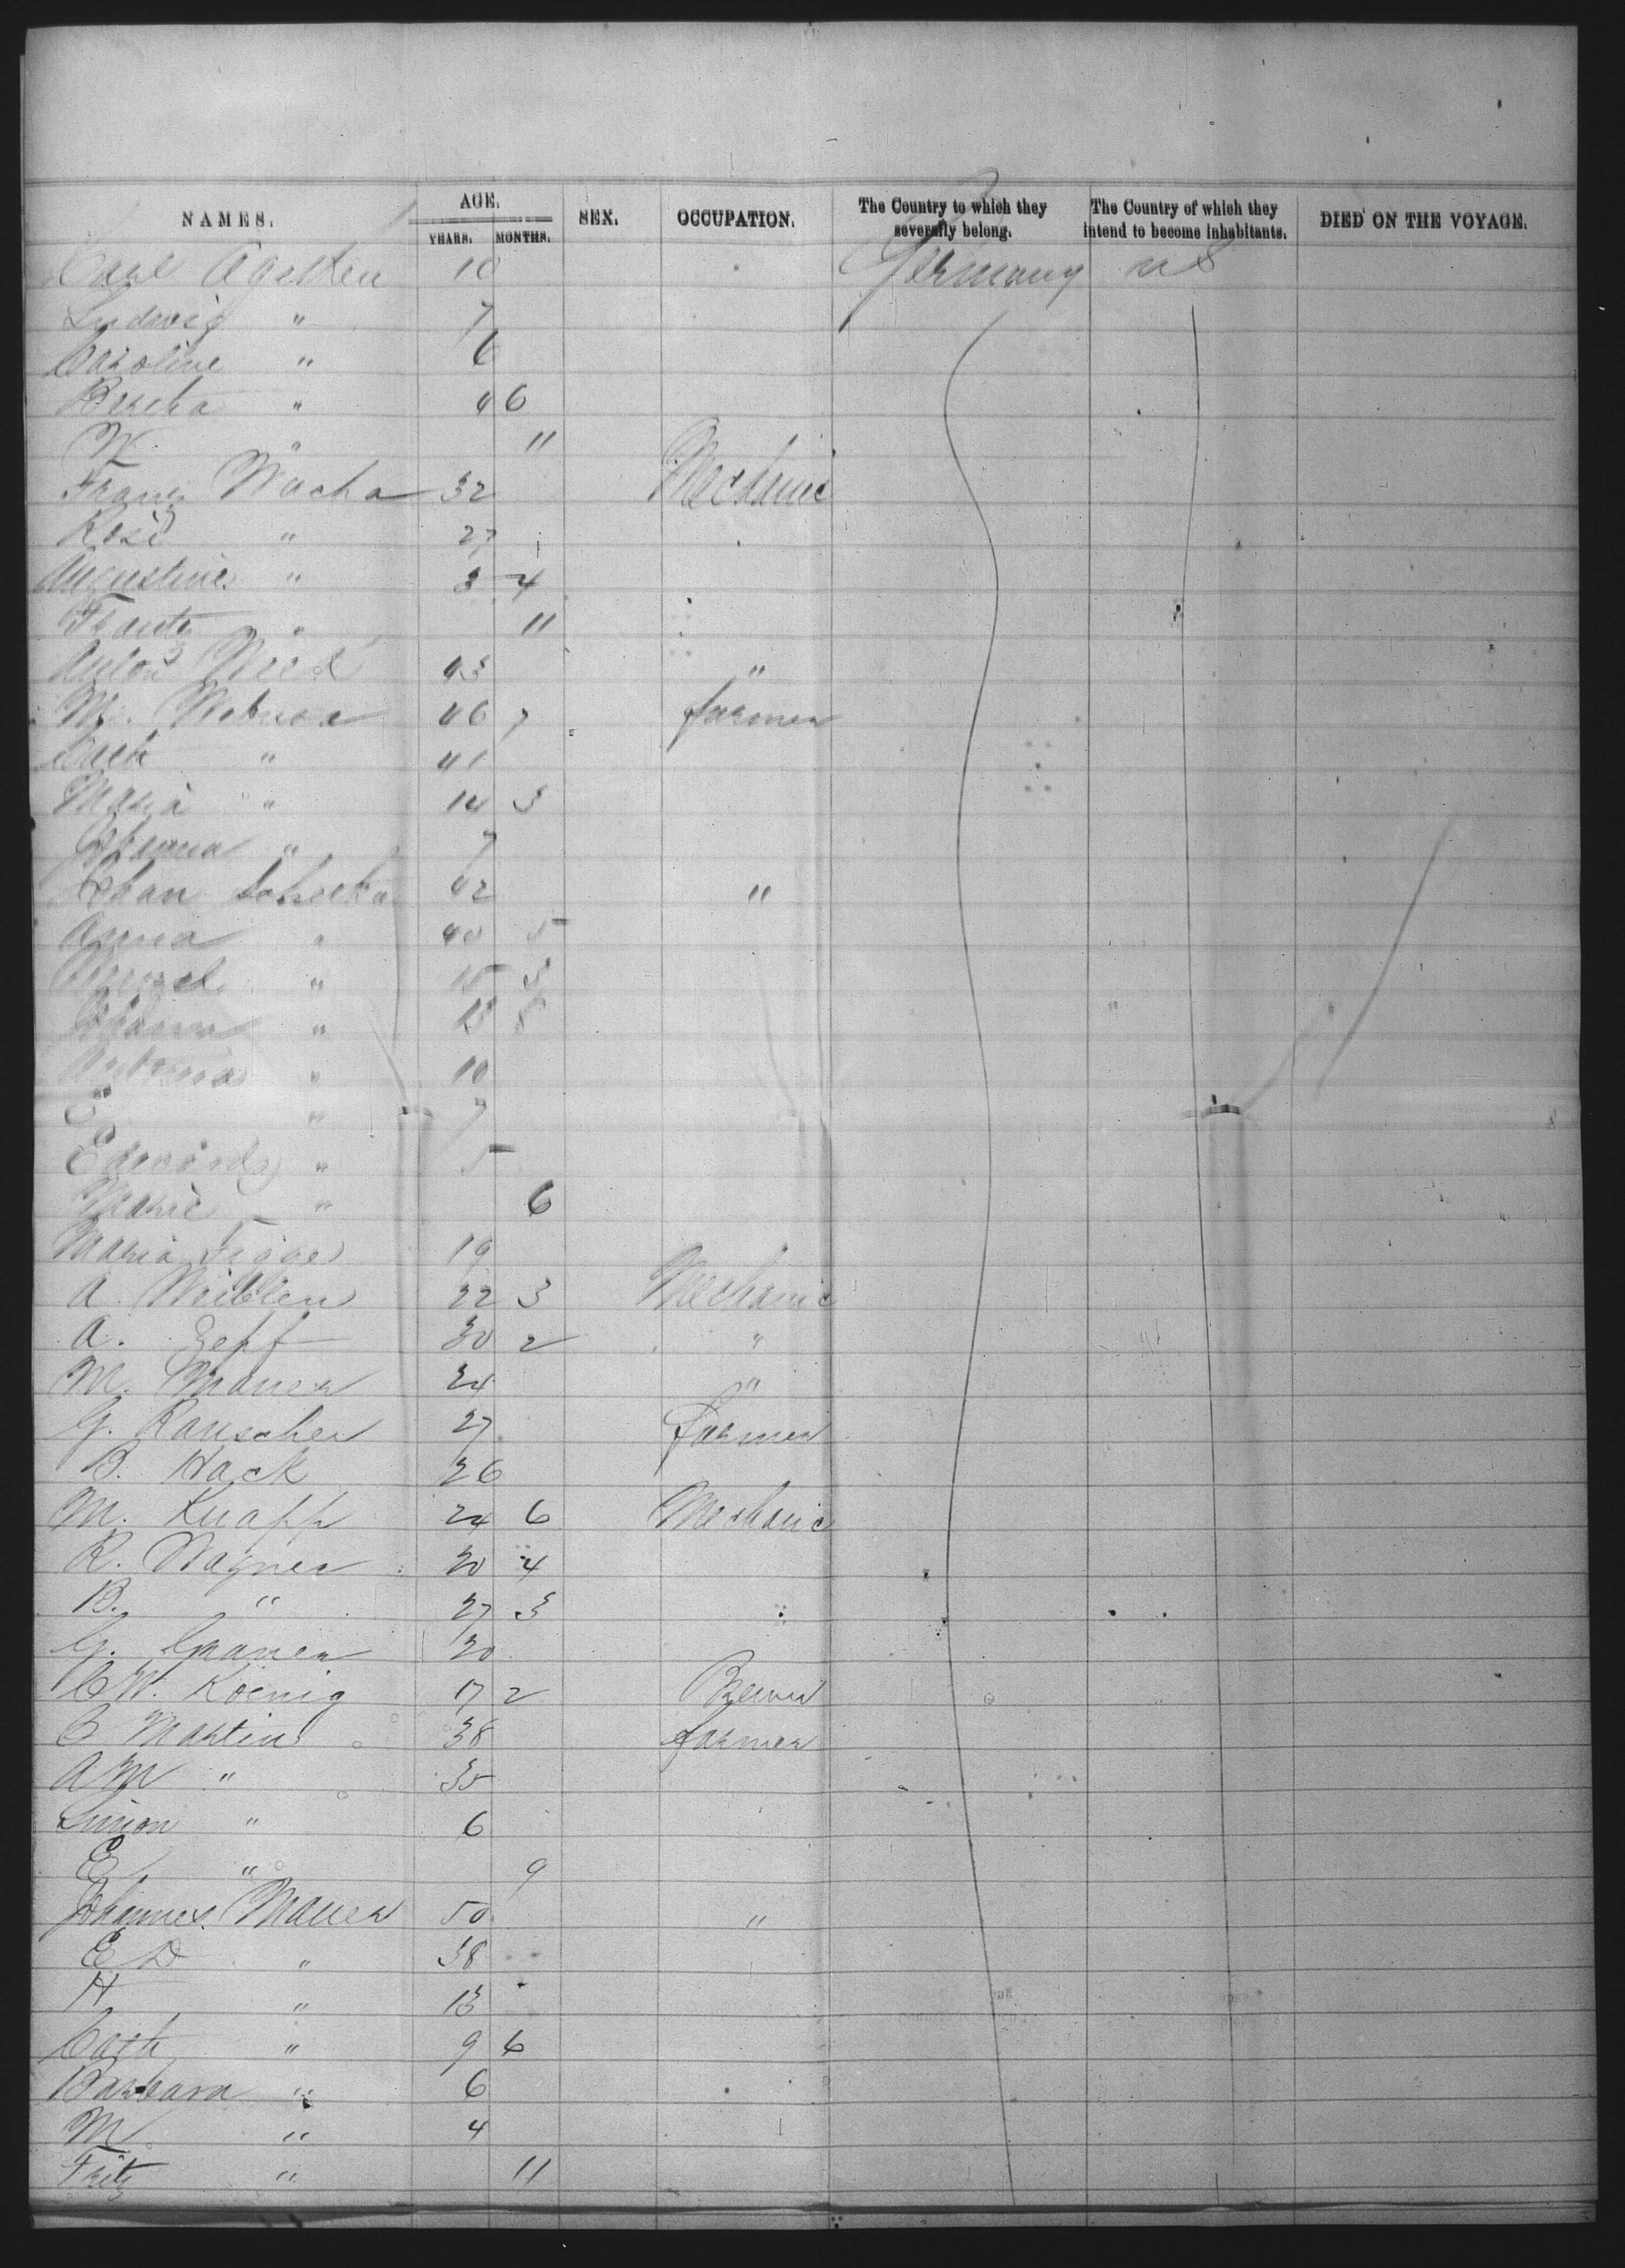 NAMES. AGE. SEX. OCCUPATION. The Country to which they severally belong. The Country of which they intend to become inhabitants. DIED ON THE VOYAGE.
YEARS. MONTHS.
Carl 10 Germany U S
Ludwig " 7
Caroline " 6
Bertha " 4 6
W. " 11
Franz Wacha 32 Mechanic
Rosi " 27
Augustine " 3 4
Frantz " 11
Anton 43 "
M. 46 7 farmer
Cath " 41
Maria " 14 3
Johanna " 7
Johan 42 "
Anna " 40 5
Wenzel " 15 3
Johanna " 13 8
Antonia " 10
E " 7
Edward " 5
Marie " 6
Maria Figge 19
A. 22 3 Mechanic
A. Zepf 30 2 "
M. Mauer 24 "
G. Rauscher 27 farmer
B. Hack 26
M. Knapp 24 6 Mechanic
R. Wagner 30 4
B. " 27 3
G. 30
C W. Koenig 17 2 Brewer
C Martin 38 farmer
A M " 35
Simon " 6
E " 9
Johannes Mauer 50 "
E D " 38
H " 13
Cath " 9 6
Barbara " 6
M " 4
Fritz " 11